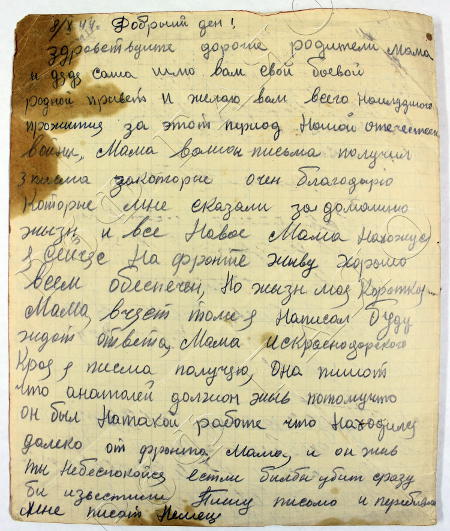 8/X 44г. Добрый ден!
Здравствуите дорогие родители мама
и дядя саша шлю вам свой боевой
родной привет и желаю вам всего Наилудшого
прожития за этот период Нашой отечествен
воини, Мама вашои письма получил
3 писма закоторые очен благодарю
Которые мне сказали за домашню
жизн и все Новое Мама Нахожус
я сейчас На фронте живу хорошо
всем обеспечен, Но жизн моя Короткая
Мама, я Написал Буду
ждат ответа, Мама искраснодарского
Края писма получую, Она пишот
что анатолей должон жив потомучто
он был Натакой работе что Находился
далеко от фронта, Мама, и он жив
ти Небеспокойся естли былбы убит сразу
бы известили Пишу письмо и
Мне писат Немец